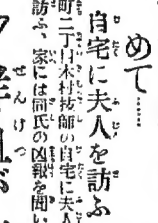 めて……
自宅に夫人を訪ふ
町二丁目木村技師の自宅に夫人
訪ふ、家には同氏の凶報を聞い